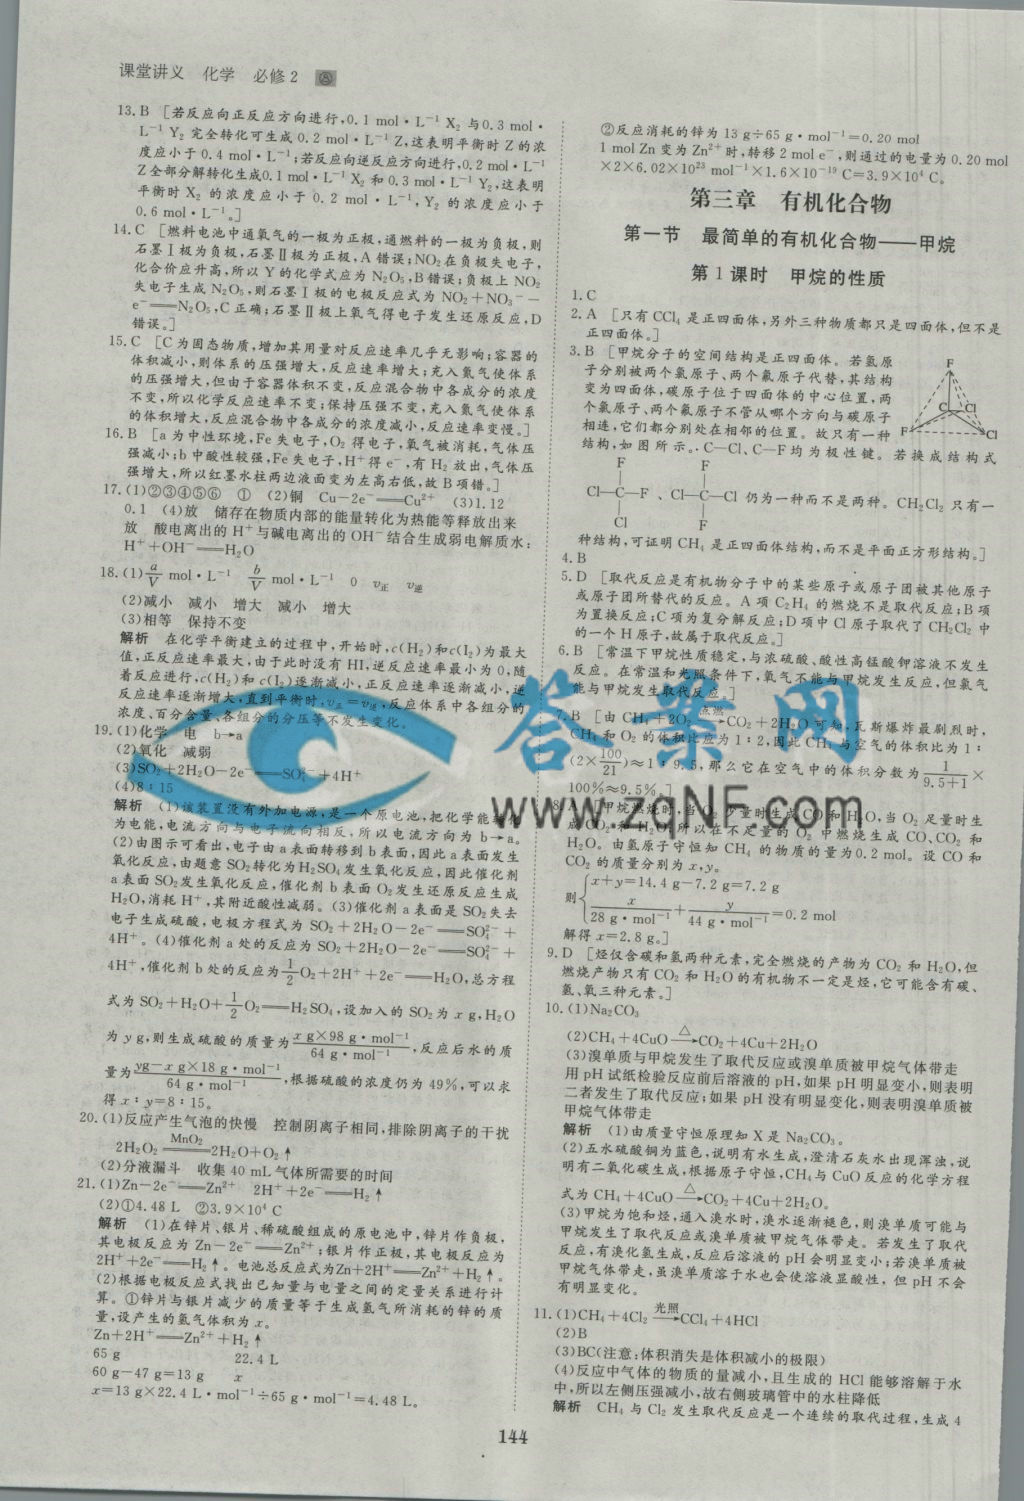 课堂讲义 化学 必修2
13.B [若反应向正反应方向进行,0.1 mol·L⁻¹ X₂ 与0.3 mol·
L⁻¹ Y₂ 完全转化可生成0.2 mol·L⁻¹ Z,这表明平衡时Z的浓
度应小于0.4 mol·L⁻¹;若反应向逆反应方向进行,0.2 mol·L⁻¹
Z全部分解转化生成0.1 mol·L⁻¹ X₂ 和0.3 mol·L⁻¹ Y₂,这表明
平衡时 X₂ 的浓度应小于 0.2 mol·L⁻¹,Y₂ 的浓度应小于
0.6 mol·L⁻¹。]
14.C [燃料电池中通氧气的一极为正极,通燃料的一极为负极,则
石墨Ⅰ极为负极,石墨Ⅱ极为正极,A错误;NO₂在负极失电子,
化合价应升高,所以Y的化学式应为N₂O₅,B错误;负极上NO₂
失电子生成N₂O₅,则石墨Ⅰ极的电极反应式为NO₂+NO₃⁻-
e⁻══N₂O₅,C正确;石墨Ⅱ极上氧气得电子发生还原反应,D
错误。]
15.C [C为固态物质,增加其用量对反应速率几乎无影响;容器的
体积减小,则体系的压强增大,反应速率增大;充入氮气使体系
的压强增大,但由于容器体积不变,反应混合物中各成分的浓度
不变,所以化学反应速率不变;保持压强不变,充入氮气使体系
的体积增大,反应混合物中各成分的浓度减小,反应速率变慢。]
16.B [a为中性环境,Fe失电子,O₂得电子,氧气被消耗,气体压
强减小;b中酸性较强,Fe失电子,H⁺得e⁻,有H₂放出,气体压
强增大,所以红墨水柱两边液面变为左高右低,故B项错。]
17.(1)②③④⑤⑥ ① (2)铜 Cu-2e⁻══Cu²⁺ (3)1.12
0.1 (4)放 储存在物质内部的能量转化为热能等释放出来
放 酸电离出的H⁺与碱电离出的OH⁻结合生成弱电解质水:
H⁺+OH⁻══H₂O
18.(1)a/V mol·L⁻¹ b/V mol·L⁻¹ 0 v正 v逆
(2)减小 减小 增大 减小 增大
(3)相等 保持不变
解析 在化学平衡建立的过程中,开始时,c(H₂)和c(I₂)为最大
值,正反应速率最大,由于此时没有HI,逆反应速率最小为0,随
着反应进行,c(H₂)和c(I₂)逐渐减小,正反应速率逐渐减小,逆
反应速率逐渐增大,直到平衡时,v正=v逆,反应体系中各组分的
浓度、百分含量、各组分的分压等不发生变化。
19.(1)化学 电 b→a
(2)氧化 减弱
(3)SO₂+2H₂O-2e⁻══SO₄²⁻+4H⁺
(4)8∶15
解析 (1)该装置没有外加电源,是一个原电池,把化学能转化
为电能,电流方向与电子流向相反,所以电流方向为b→a。
(2)由图示可看出,电子由a表面转移到b表面,因此a表面发生
氧化反应,由题意SO₂转化为H₂SO₄发生氧化反应,因此催化剂
a表面SO₂发生氧化反应,催化剂b表面O₂发生还原反应生成
H₂O,消耗H⁺,其附近酸性减弱。(3)催化剂a表面是SO₂失去
电子生成硫酸,电极方程式为SO₂+2H₂O-2e⁻══SO₄²⁻+
4H⁺。(4)催化剂a处的反应为SO₂+2H₂O-2e⁻══SO₄²⁻+
4H⁺,催化剂b处的反应为1/2O₂+2H⁺+2e⁻══H₂O,总方程
式为SO₂+H₂O+1/2O₂══H₂SO₄,设加入的SO₂为x g,H₂O
为y g,则生成硫酸的质量为x g×98 g·mol⁻¹/64 g·mol⁻¹,反应后水的质
量为yg-x g×18 g·mol⁻¹/64 g·mol⁻¹,根据硫酸的浓度仍为49%,可以求
得x∶y=8∶15。
20.(1)反应产生气泡的快慢 控制阴离子相同,排除阴离子的干扰
2H₂O₂ ═MnO₂═ 2H₂O+O₂↑
(2)分液漏斗 收集40 mL气体所需要的时间
21.(1)Zn-2e⁻══Zn²⁺ 2H⁺+2e⁻══H₂↑
(2)①4.48 L ②3.9×10⁴ C
解析 (1)在锌片、银片、稀硫酸组成的原电池中,锌片作负极,
其电极反应为Zn-2e⁻══Zn²⁺;银片作正极,其电极反应为
2H⁺+2e⁻══H₂↑。电池总反应式为Zn+2H⁺══Zn²⁺+H₂↑。
(2)根据电极反应式找出已知量与电量之间的定量关系进行计
算。①锌片与银片减少的质量等于生成氢气所消耗的锌的质
量,设产生的氢气体积为x。
Zn+2H⁺══Zn²⁺+H₂↑
65 g 22.4 L
60 g-47 g=13 g x
x=13 g×22.4 L·mol⁻¹÷65 g·mol⁻¹=4.48 L。
②反应消耗的锌为13 g÷65 g·mol⁻¹=0.20 mol
1 mol Zn变为Zn²⁺时,转移2 mol e⁻,则通过的电量为0.20 mol
×2×6.02×10²³ mol⁻¹×1.6×10⁻¹⁹ C=3.9×10⁴ C。
第三章 有机化合物
第一节 最简单的有机化合物——甲烷
第1课时 甲烷的性质
1.C
2.A [只有CCl₄是正四面体,另外三种物质都只是四面体,但不是
正四面体。]
3.B [甲烷分子的空间结构是正四面体。若氢原
子分别被两个氯原子、两个氟原子代替,其结构
变为四面体,碳原子位于四面体的中心位置,两
个氯原子、两个氟原子不管从哪个方向与碳原子
相连,它们都分别处在相邻的位置。故只有一种
结构,如图所示。C—Cl、C—F均为极性键。若换成结构式
F
C Cl
F Cl
F F
Cl—C—F、Cl—C—Cl 仍为一种而不是两种。CH₂Cl₂只有一
Cl F
种结构,可证明CH₄是正四面体结构,而不是平面正方形结构。]
4.B
5.D [取代反应是有机物分子中的某些原子或原子团被其他原子
或原子团所替代的反应。A项C₂H₄的燃烧不是取代反应;B项
为置换反应;C项为复分解反应;D项中Cl原子取代了CH₂Cl₂中
的一个H原子,故属于取代反应。]
6.B [常温下甲烷性质稳定,与浓硫酸、酸性高锰酸钾溶液不发生
反应。在常温和光照条件下,氧气不能与甲烷发生反应,但氯气
能与甲烷发生取代反应。]
7.B [由CH₄+2O₂ 点燃→ CO₂+2H₂O可知,瓦斯爆炸最剧烈时,
CH₄和O₂的体积比应为1∶2,因此CH₄与空气的体积比为1∶
(2×100/21)≈1∶9.5,那么它在空气中的体积分数为1/(9.5+1)×
100%≈9.5%。]
8.A [甲烷燃烧时,当O₂少量时生成CO和H₂O,当O₂足量时生
成CO₂和H₂O,所以在不足量的O₂中燃烧生成CO、CO₂和
H₂O。由氢原子守恒知CH₄的物质的量为0.2 mol。设CO和
CO₂的质量分别为x,y。
则{x+y=14.4 g-7.2 g=7.2 g
x/28 g·mol⁻¹+y/44 g·mol⁻¹=0.2 mol
解得x=2.8 g。]
9.D [烃仅含碳和氢两种元素,完全燃烧的产物为CO₂和H₂O,但
燃烧产物只有CO₂和H₂O的有机物不一定是烃,它可能含有碳、
氢、氧三种元素。]
10.(1)Na₂CO₃
(2)CH₄+4CuO △→ CO₂+4Cu+2H₂O
(3)溴单质与甲烷发生了取代反应或溴单质被甲烷气体带走
用pH试纸检验反应前后溶液的pH,如果pH明显变小,则表明
二者发生了取代反应;如果pH没有明显变化,则表明溴单质被
甲烷气体带走
解析 (1)由质量守恒原理知X是Na₂CO₃。
(2)五水硫酸铜为蓝色,说明有水生成,澄清石灰水出现浑浊,说
明有二氧化碳生成,根据原子守恒,CH₄与CuO反应的化学方程
式为CH₄+4CuO △→ CO₂+4Cu+2H₂O。
(3)甲烷为饱和烃,通入溴水时,溴水逐渐褪色,则溴单质可能与
甲烷发生了取代反应或溴单质被甲烷气体带走。若发生了取代
反应,有溴化氢生成,反应后溶液的pH会明显变小;若溴单质被
甲烷气体带走,虽溴单质溶于水也会使溶液显酸性,但pH不会
有明显变化。
11.(1)CH₄+4Cl₂ 光照→ CCl₄+4HCl
(2)B
(3)BC(注意:体积消失是体积减小的极限)
(4)反应中气体的物质的量减小,且生成的HCl能够溶解于水
中,所以左侧压强减小,故右侧玻璃管中的水柱降低
解析 CH₄与Cl₂发生取代反应是一个连续的取代过程,生成4
144
答案网
www.zqNF.com